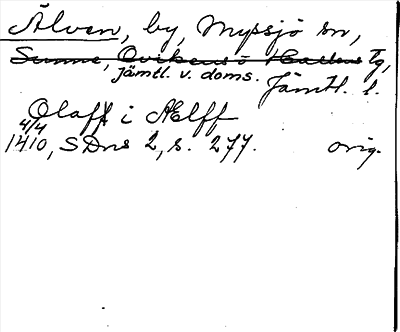 Älven, by, Myssjö sn,
Sunne, Ovikens o Hallens Tg,
Jämtl. v. doms. Jämtl. l.
Olaff i Ælff
4/4
1410, SDns 2, s. 277. orig.